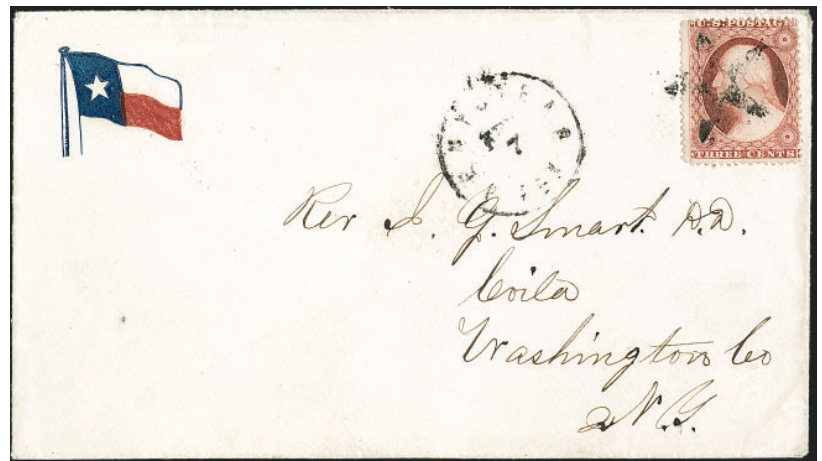 U.S. POSTAGE
THREE CENTS
Rev J. G. Smart. D.D.
Coila
Washington Co
N.Y.